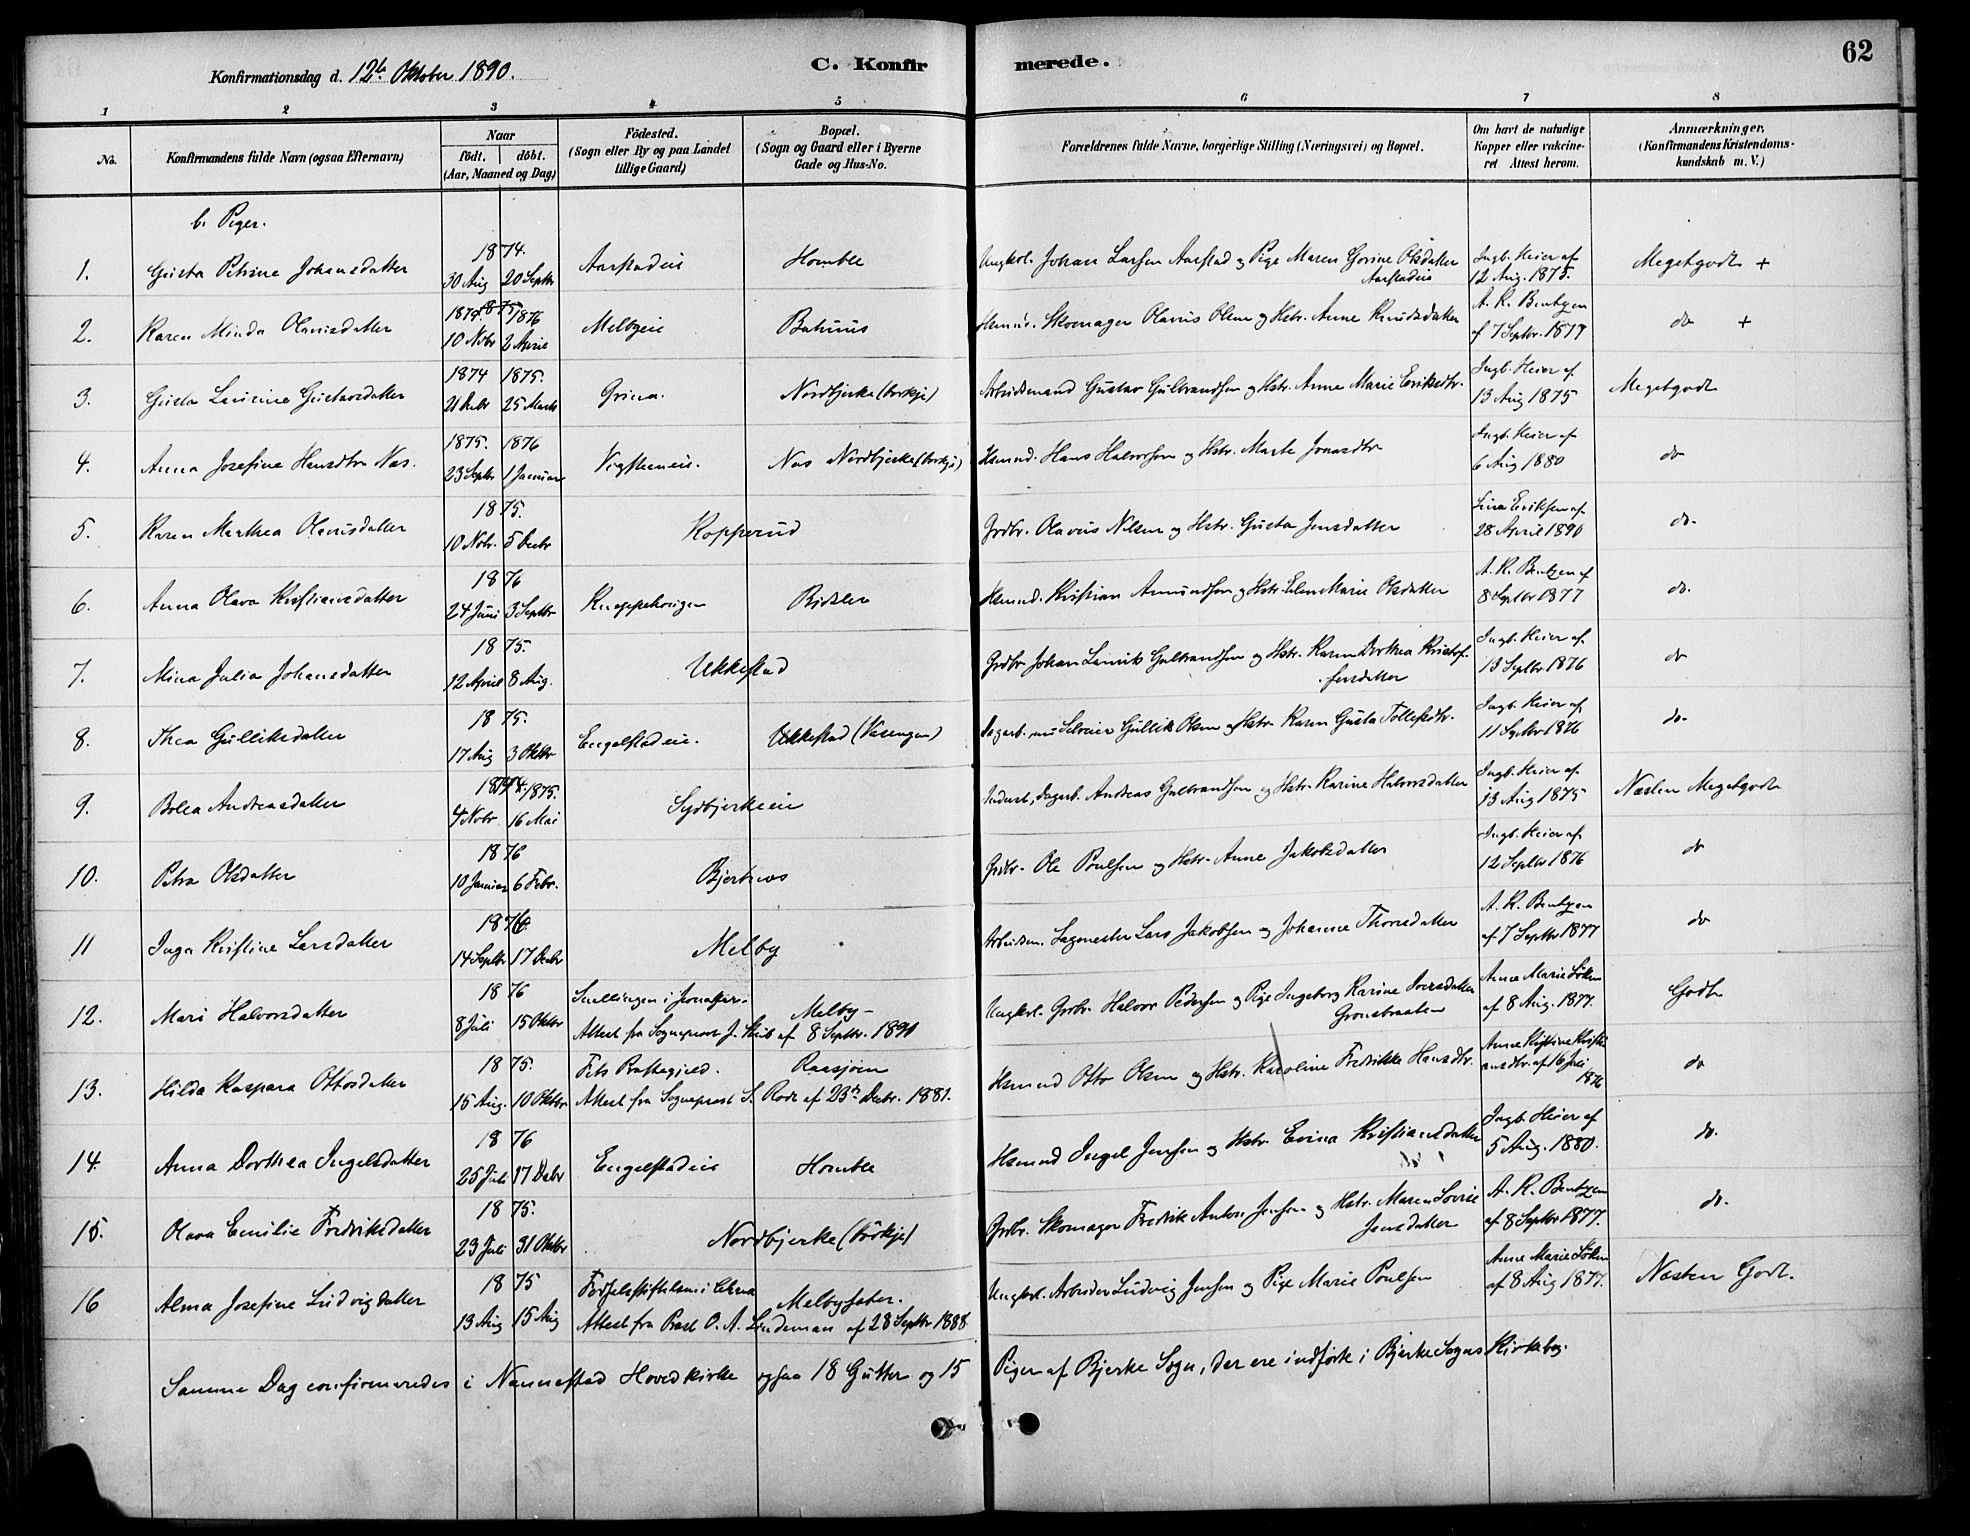 62
Konfirmationsdag d. 12te Oktober 1890.
C. Konfirmerede.
1 2 3 4 5 6 7 8
No. Konfirmandens fulde Navn (ogsaa Efternavn) Naar födt. döbt. (Aar, Maaned og Dag) Födested. (Sogn eller By og paa Landet tillige Gaard) Bopæl. (Sogn og Gaard eller i Byerne Gade og Hus-No. Forældrenes fulde Navne, borgerlige Stilling (Næringsvei) og Bopæl. Om havt de naturlige Kopper eller vakcineret Attest herom. Anmærkninger. (Konfirmandens Kristendomskundskab m. V.)
b. Piger.
1. Gusta Petrine Johansdatter 1874. 30 Aug 20 Septbr Aarstadeie Homble Ungkrl. Johan Larsen Aarstad og Pige Maren Gorine Olsdatter Aarstadeie Ingb. Heier af 12 Aug. 1875. Megetgodt +
2. Karen Minda Olausdatter 1874. 1876 10 Nobr 2 April Melbyeie Bahuus Husmd. Skomager Olavus Olsen og Hstr. Anne Knudsdatter A. R. Bentzen af 7 Septbr. 1877 do +
3. Gusta Laurine Gustavsdatter 1874 1875. 21 Debr 25 Marts Grina. Nordbjerke (borkje) Arbeidsmand Gustav Gulbrandsen og Hstr. Anne Marie Eriksdtr. Ingb. Heier af 13 Aug 1875 Megetgodt
4. Anna Josefine Hansdtr Næs. 1875. 1876 23 Septbr 1 Januar Vigsteneie. Næs Nordbjerke (borkje) Husmd. Hans Halvorsen og Hstr. Marte Jonasdtr Ingb. Heier af 6 Aug 1880 do
5. Karen Marthea Olausdatter 1875. 10 Nobr. 5 Decbr Kopperud Grdbr. Olavus Nilsen og Hstr. Gusta Jensdatter Lina Eriksen af 28 April 1890 do.
6. Anna Olava Kristiansdatter 1876 24 Juni 3 Septbr Knappehougen Ridsler Husmd. Kristian Amundsen og Hstr. Elen Marie Olsdatter A. R. Bentzen af 8 Septbr 1877 do.
7. Mina Julia Johansdatter 1875. 12 April 8 Aug. Ukkestad Grdbr Johan Laurits Gulbrandsen og Hstr. Karen Dorthea Kristofersdatter Ingb. Heier af 13 Septbr 1876 do
8. Thea Gulliksdatter 1875. 17 Aug 3 Oktbr Engelstadeie. Ukkestad (Vasengen) Dagarb. nu Selveier Gullik Olsen og Hstr Karen Gusta Tollefsdtr. Ingb. Heier af 11 Septbr 1876 do.
9. Bolla Andreasdatter 1874. 1875. 4 Nobr 16 Mai Sydbjerkeeie Inderst, Dagarb. Andreas Gulbrandsen og Hstr. Karine Halvorsdatter Ingb. Heier af 13 Aug 1875 Næsten Megetgodt
10. Petra Olsdatter 1876 10 Januar 6 Febr. Bjertnes Grdbr. Ole Poulsen og Hstr. Anne Jakobsdatter Ingb. Heier af 12 Septbr 1876 do
11 Inga Kristine Larsdatter 1876. 14 Septbr 17 Decbr Melby Arbeidsm. Sagmester Lars Jakobsen og Johanne Thorsdatter A. R. Bentzen af 7 Septbr 1877 do
12. Mari Halvorsdatter 1876 8 Juli 15 Oktbr Melby Attest fra Sogneprest af 8 Septbr. 1890 Ungkrl. Grdbr. Halvor Pedersen og Pige Ingeborg Karine Iversdatter Gronebraaten Anne Marie Löken af 8 Aug. 1877. Godt
13. Hilda Kaspara Ottosdatter 1875. 15 Aug. 10 Oktbr Fets Prestegjeld. Raasjöen Attest fra Sogneprest S. Rode af 23de Decbr. 1881. Husmd Otto Olsen og Hstr. Karoline Fredrikke Hansdtr. Anne Kristine Kristiansdtr. af 16 Juli 1876 do
14. Anna Dorthea Ingelsdatter 1876 25 Juli 17 Decbr Engelstadeie Homble Husmd Ingel Jensen og Hstr. Evina Kristiansdatter Ingb. Heier af 5 Aug. 1880. do.
15. Olava Emilie Fredriksdatter 1875. 23 Juli 31 Oktbr Nordbjerke (börkje) Grdbr. Skomager Fredrik Anton Jensen og Hstr. Maren Lovise Jensdatter A. R. Bentzen af 8 Septbr 1877. do.
16 Alma Josefine Ludvigsdatter 1875 13 Aug 15 Aug Födselsstiftelsen i Chrna Melbysæter. Attest fra Prest O. A. Lindeman af 28 Septbr 1888 Ungkrl. Arbeider Ludvig Jensen og Pige Marie Poulsen Anne Marie Löken af 8 Aug 1877. Næsten Godt.
Samme Dag confirmeredes i Nannestad Hovedkirke ogsaa 18 Gutter og 15 Piger af Bjerke Sogn, der ere indförte i Bjerke Sogns Kirkebog.